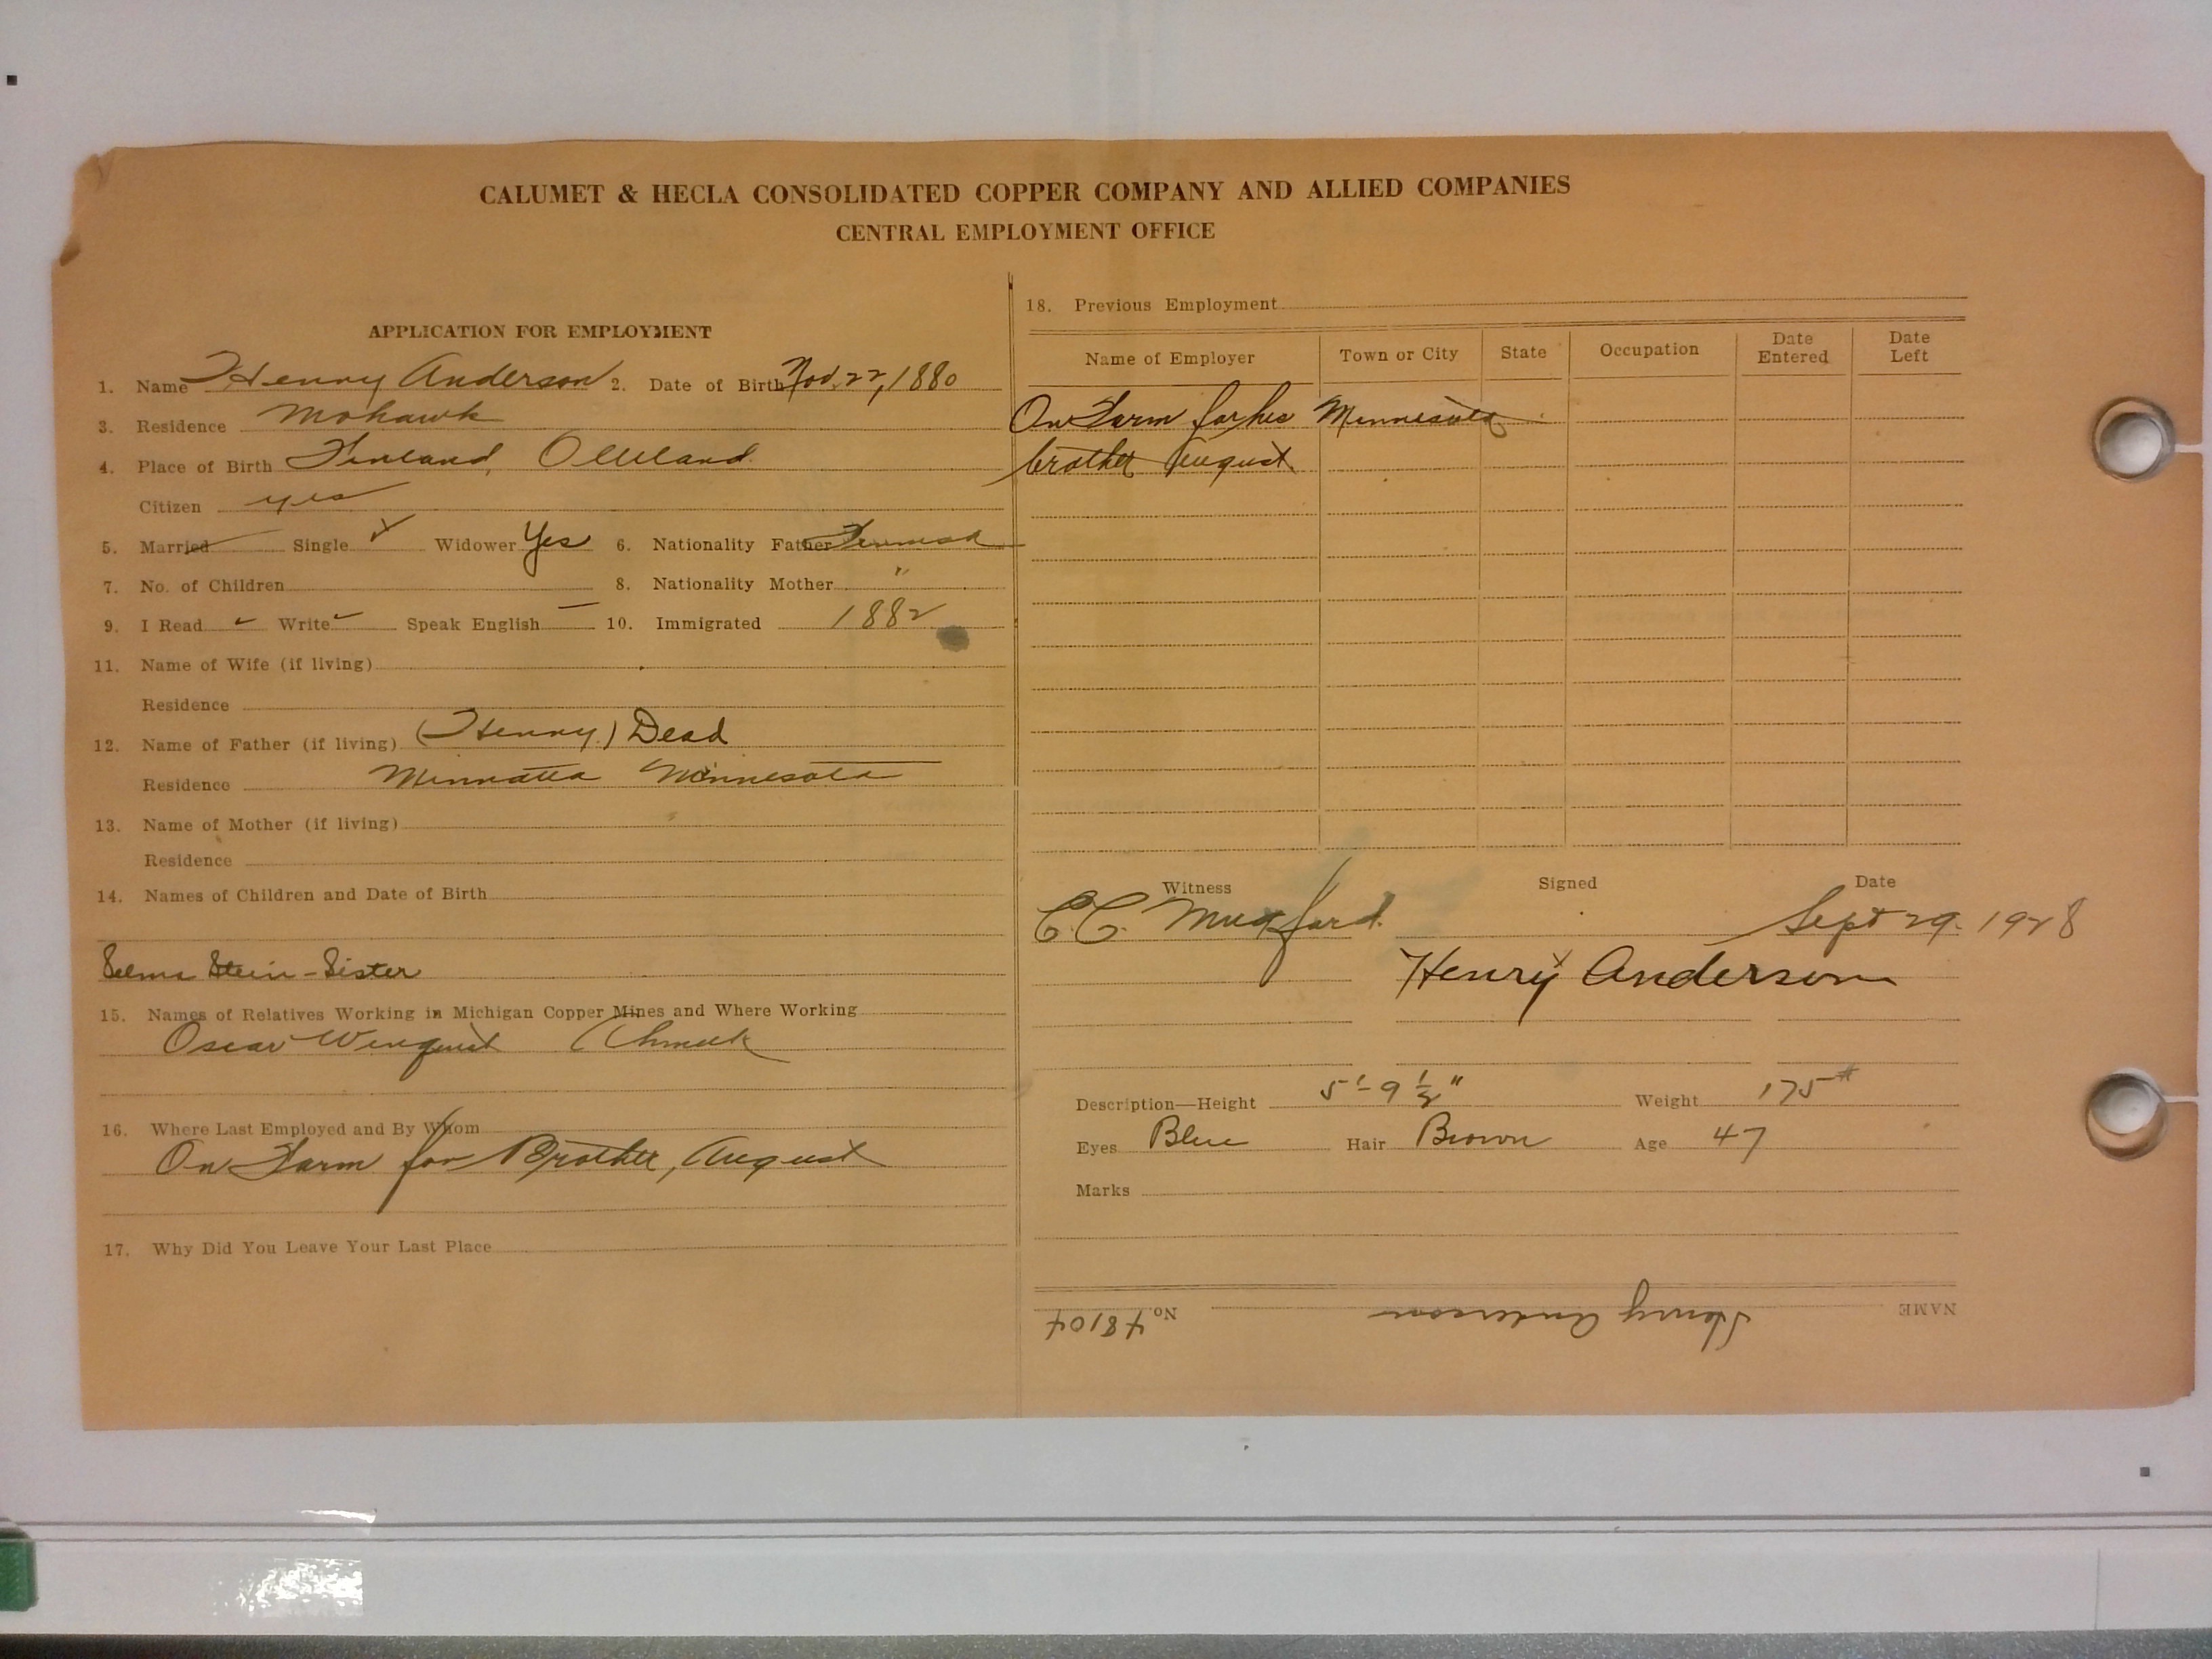 CALUMET & HECLA CONSOLIDATED COPPER COMPANY AND ALLIED COMPANIES
CENTRAL EMPLOYMENT OFFICE
APPLICATION FOR EMPLOYMENT
1. Name Henry Anderson 2. Date of Birth Nov. 22, 1880
3. Residence Mohawk
4. Place of Birth Finland,
Citizen yes
5. Married Single ✓ Widower Yes 6. Nationality Father
7. No. of Children 8. Nationality Mother "
9. I Read ✓ Write ✓ Speak English — 10. Immigrated 1882
11. Name of Wife (if living)
Residence
12. Name of Father (if living) (Henry) Dead
Residence Minnesota
13. Name of Mother (if living)
Residence
14. Names of Children and Date of Birth
Selma Stein - Sister
15. Names of Relatives Working in Michigan Copper Mines and Where Working
Oscar Wenquist Ahmeek
16. Where Last Employed and By Whom
On Farm for Brother, August
17. Why Did You Leave Your Last Place
18. Previous Employment
Name of Employer Town or City State Occupation Date Entered Date Left
On Farm for his Minnesota
brother August
Witness Signed Date
C.C. Mugford. Sept 29. 1928
Henry Anderson
Description—Height 5'-9 1/2" Weight 175#
Eyes Blue Hair Brown Age 47
Marks
NAME Henry Anderson No. 48104